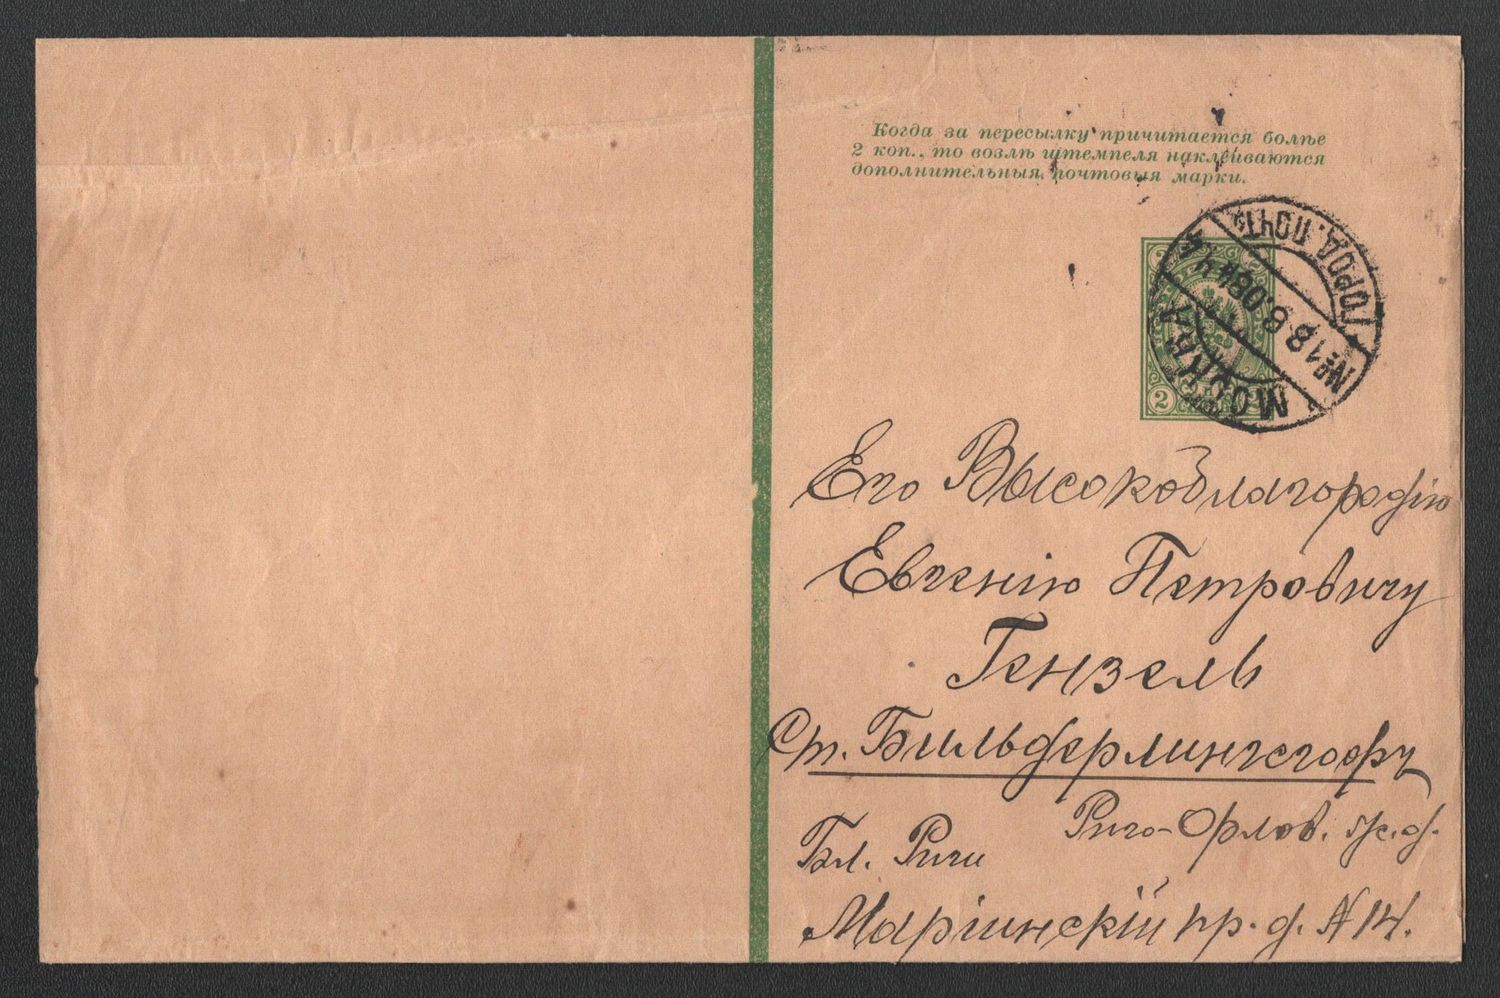 Когда за пересылку причитается болѣе
2 коп., то возлѣ штемпеля наклеиваются
дополнительныя почтовыя марки.
МОСКВА
ГОРОД. ПОЧТ.
№18 8.08
2
Его Высокоблагородію
Евгенію Петровичу
Гензель
Ст. Бильдерлингсгофъ
Риго-Орлов. ж.д.
Бл. Риги
Маріинскій пр. д. № 14.